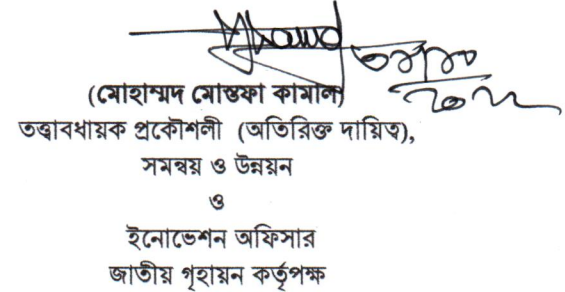 (মোহাম্মদ মোস্তফা কামাল)
তত্ত্বাবধায়ক প্রকৌশলী (অতিরিক্ত দায়িত্ব),
সমন্বয় ও উন্নয়ন
ও
ইনোভেশন অফিসার
জাতীয় গৃহায়ন কর্তৃপক্ষ